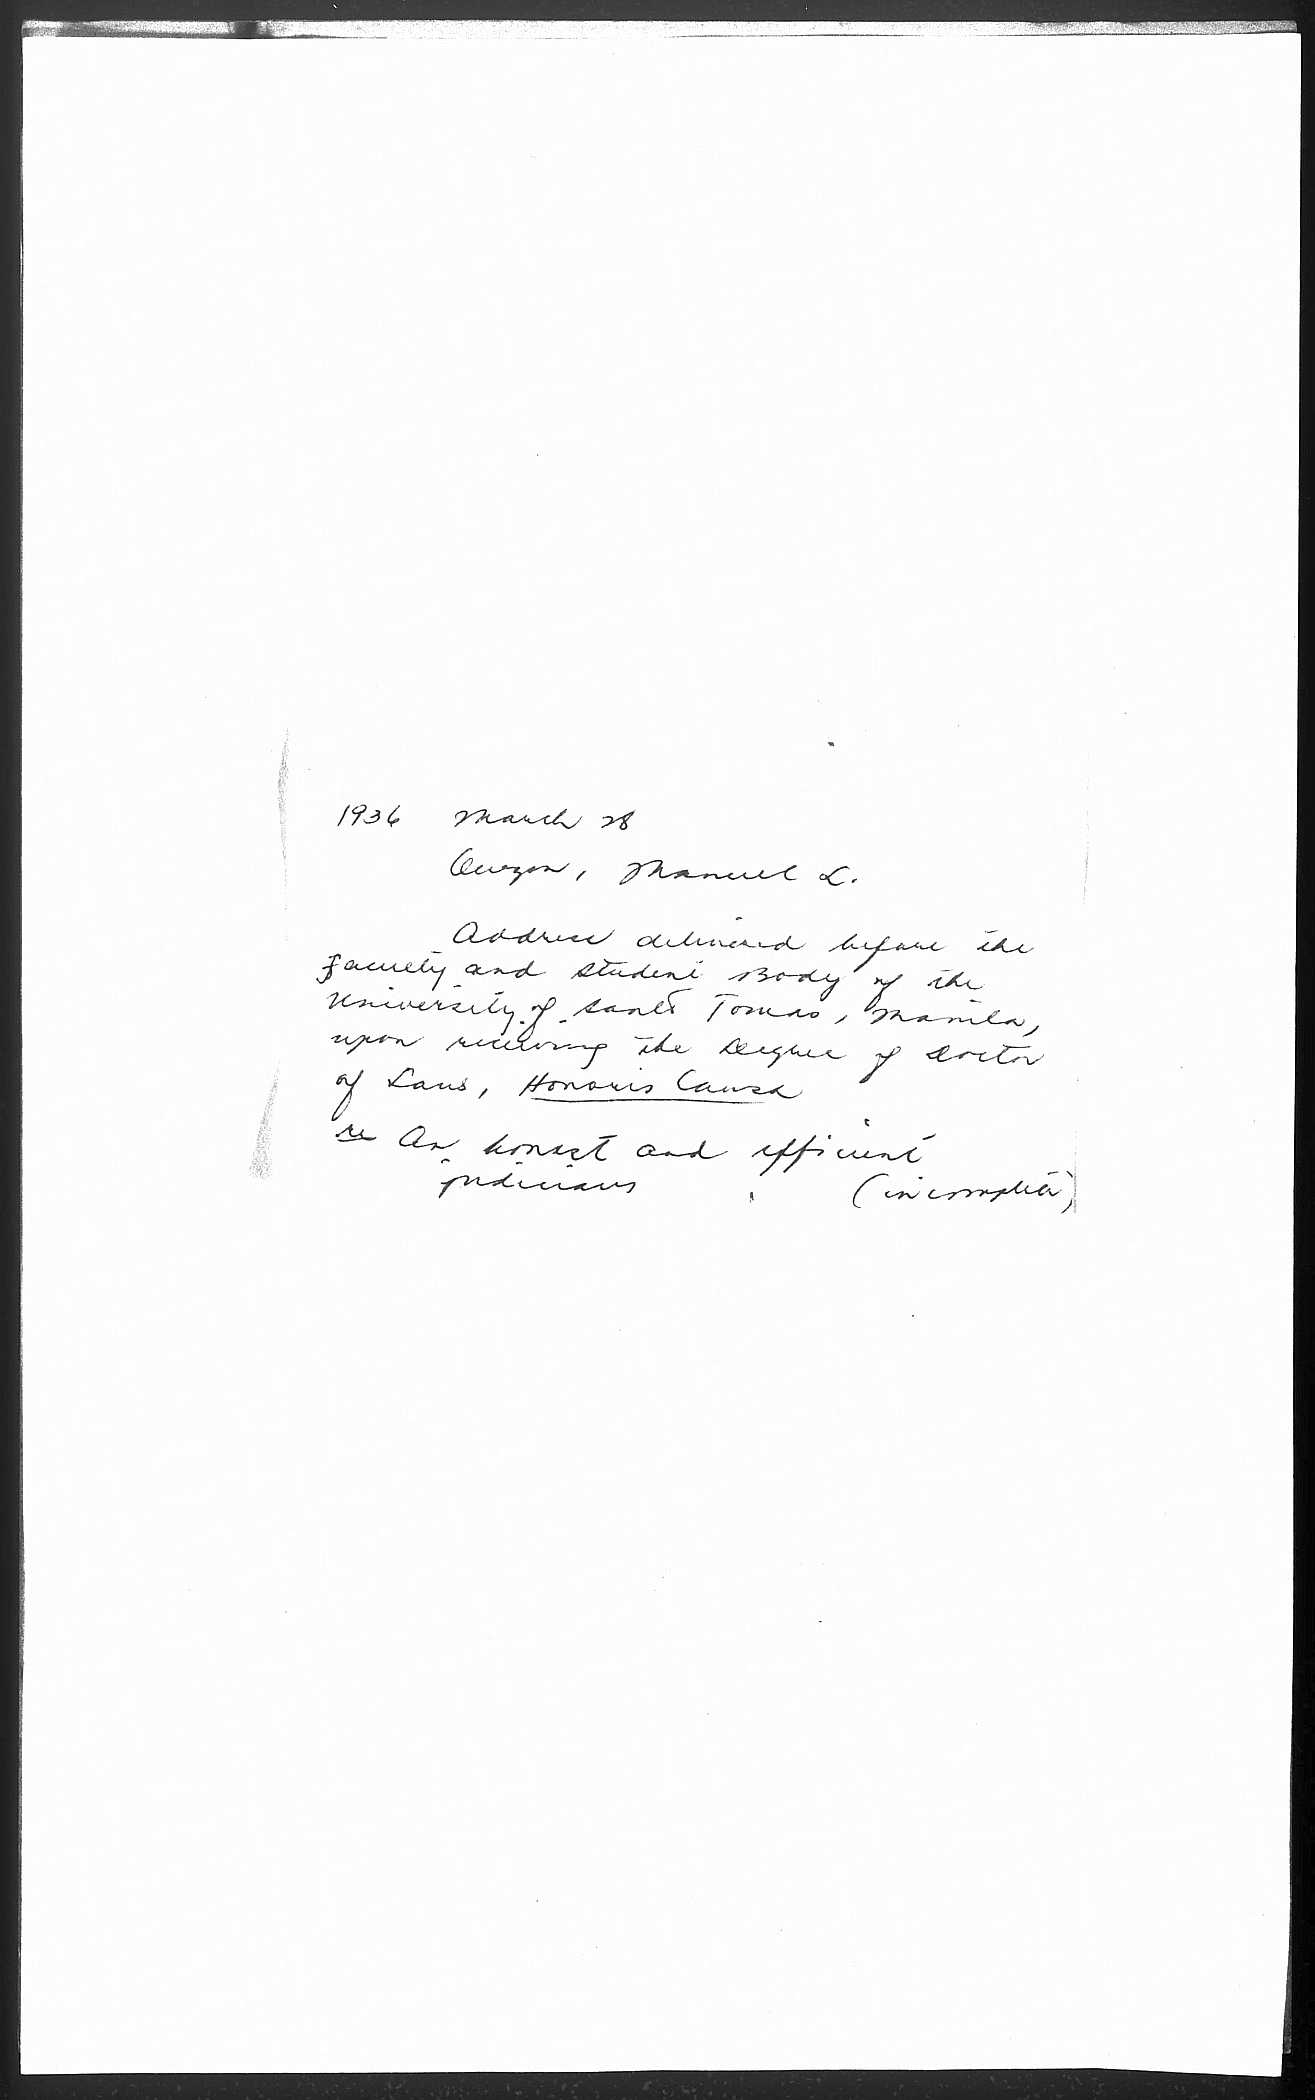 1936 March 28
Quezon, Manuel L.
Address delivered before the
Faculty and Student Body of the
University of Santo Tomas, Manila,
upon receiving the Degree of Doctor
of Laws, Honoris Causa
re An honest and efficient
judiciary (incomplete)